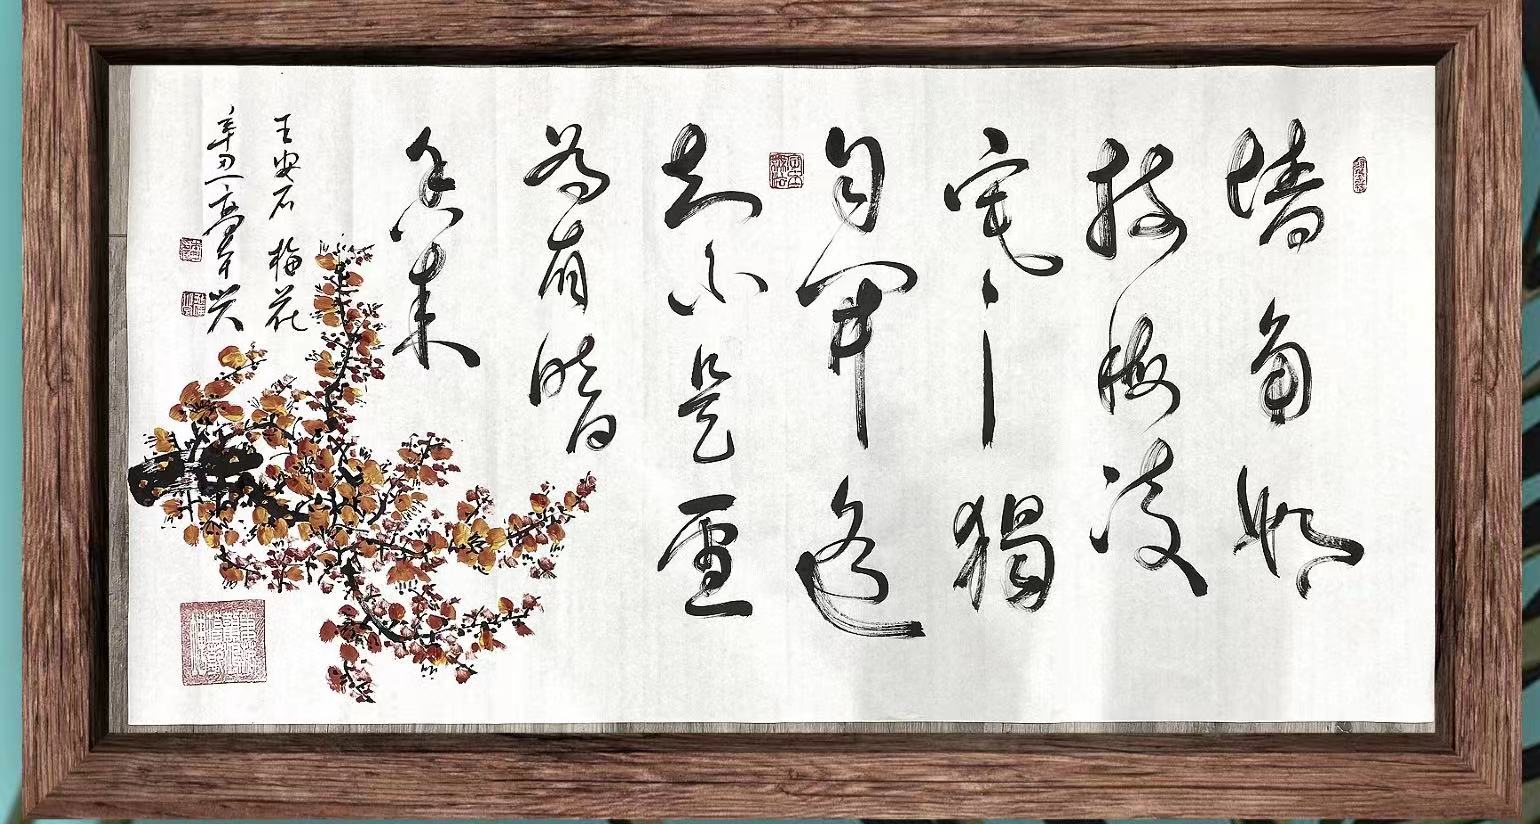 墙角数
枝梅凌
寒独
自開遥
知不是雪
为有暗
香来
王安石 梅花
辛丑